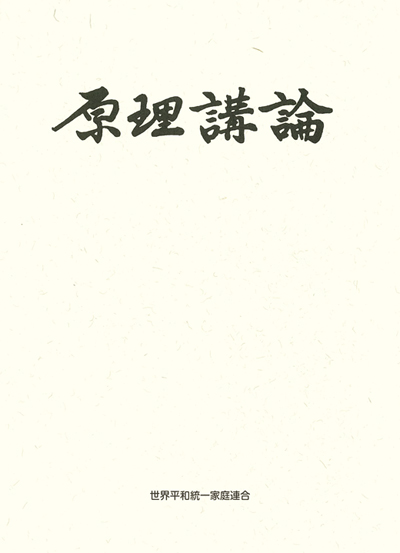 原理講論
世界平和統一家庭連合